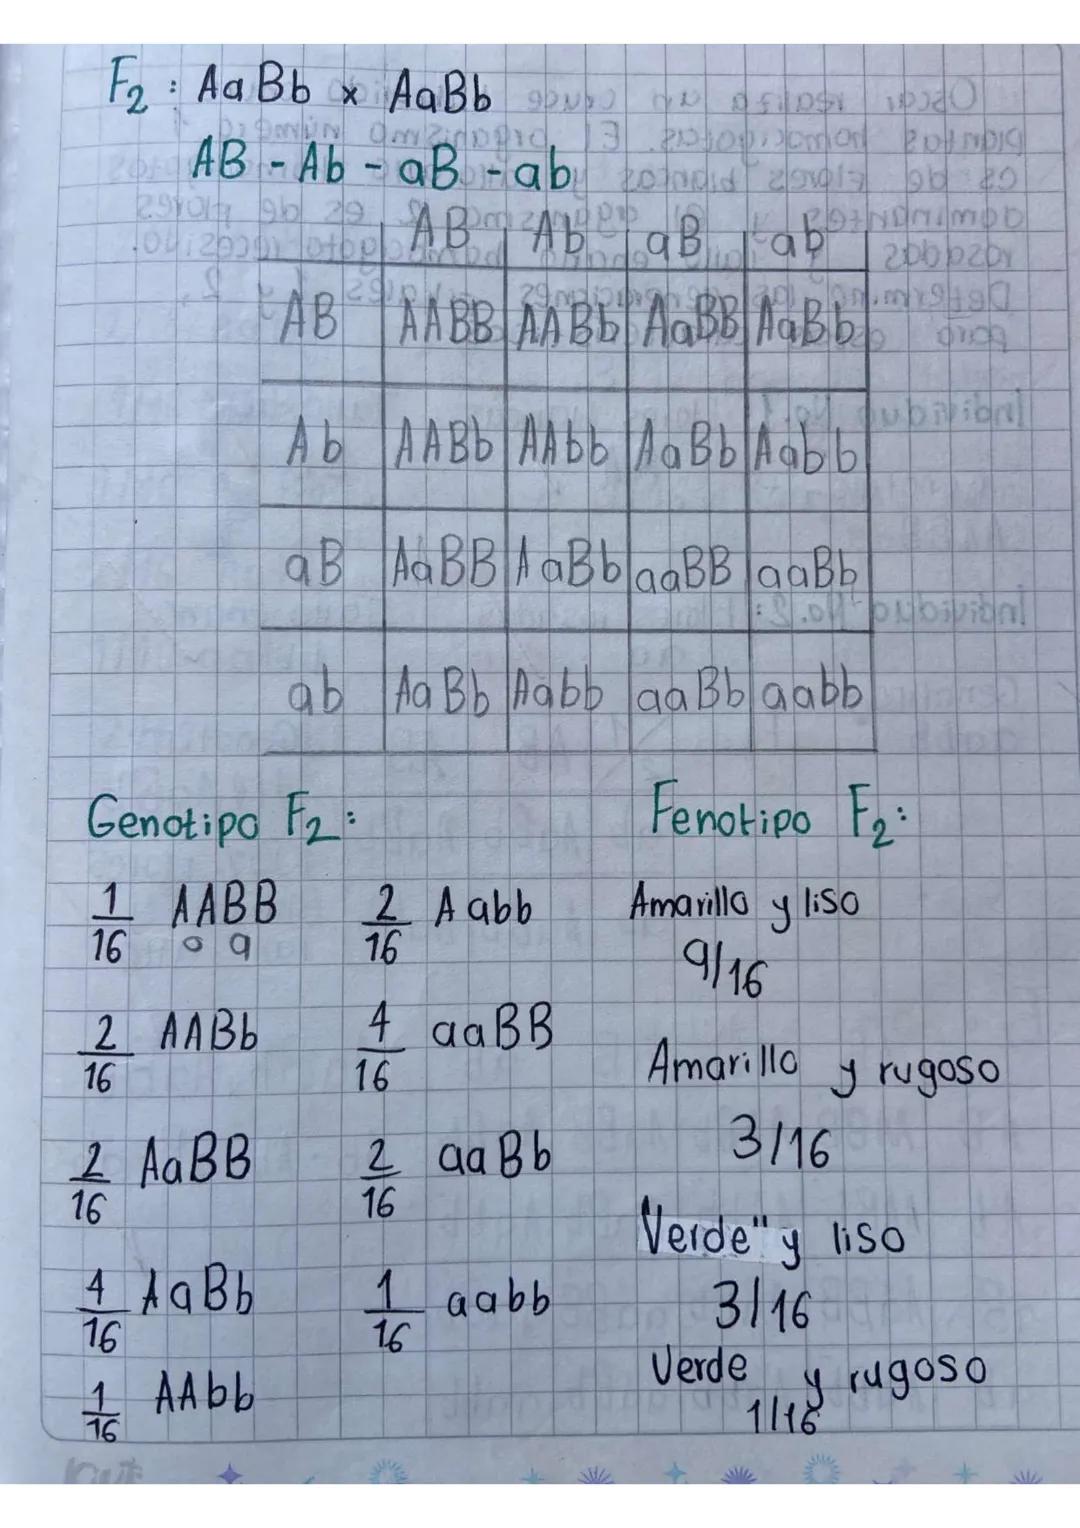 F2: AaBb x AaBb
AB - Ab - aB - ab
AB Ab aB ab
AB AABB AABb AaBB AaBb
Ab AABb AAbb AaBb Aabb
aB AaBB AaBb aaBB aaBb
ab AaBb Aabb aaBb aabb
Genotipo F2:
1/16 AABB
2/16 AABb
2/16 AaBB
4/16 AaBb
1/16 AAbb
2/16 Aabb
4/16 aaBB
2/16 aaBb
1/16 aabb
Fenotipo F2:
Amarillo y liso
9/16
Amarillo y rugoso
3/16
Verde" y liso
3/16
Verde y rugoso
1/16